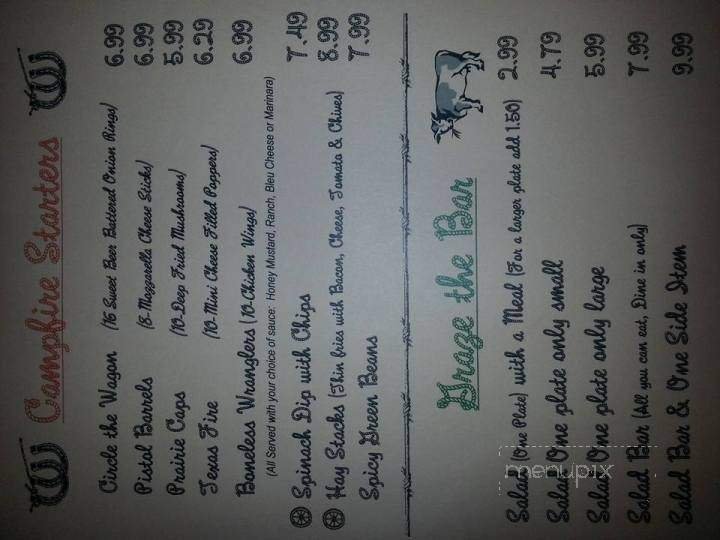 Campfire Starters
Circle the Wagon (16 Sweet Beer Battered Onion Rings) 6.99
Pistol Barrels (8-Mozzarella Cheese Sticks) 6.99
Prairie Caps (10-Deep Fried Mushrooms) 5.99
Texas Fire (10-Mini Cheese Filled Poppers) 6.29
Boneless Wranglers (10-Chicken Wings) 6.99
(All Served with your choice of sauce: Honey Mustard, Ranch, Bleu Cheese or Marinara)
Spinach Dip with Chips 7.49
Hay Stacks (Thin fries with Bacon, Cheese, Tomato & Chives) 8.99
Spicy Green Beans 7.99
Graze the Bar
Salad (One Plate) with a Meal (For a larger plate add 1.50) 2.99
Salad One plate only small 4.79
Salad One plate only large 5.99
Salad Bar (All you can eat, Dine in only) 7.99
Salad Bar & One Side Item 9.99
menupix